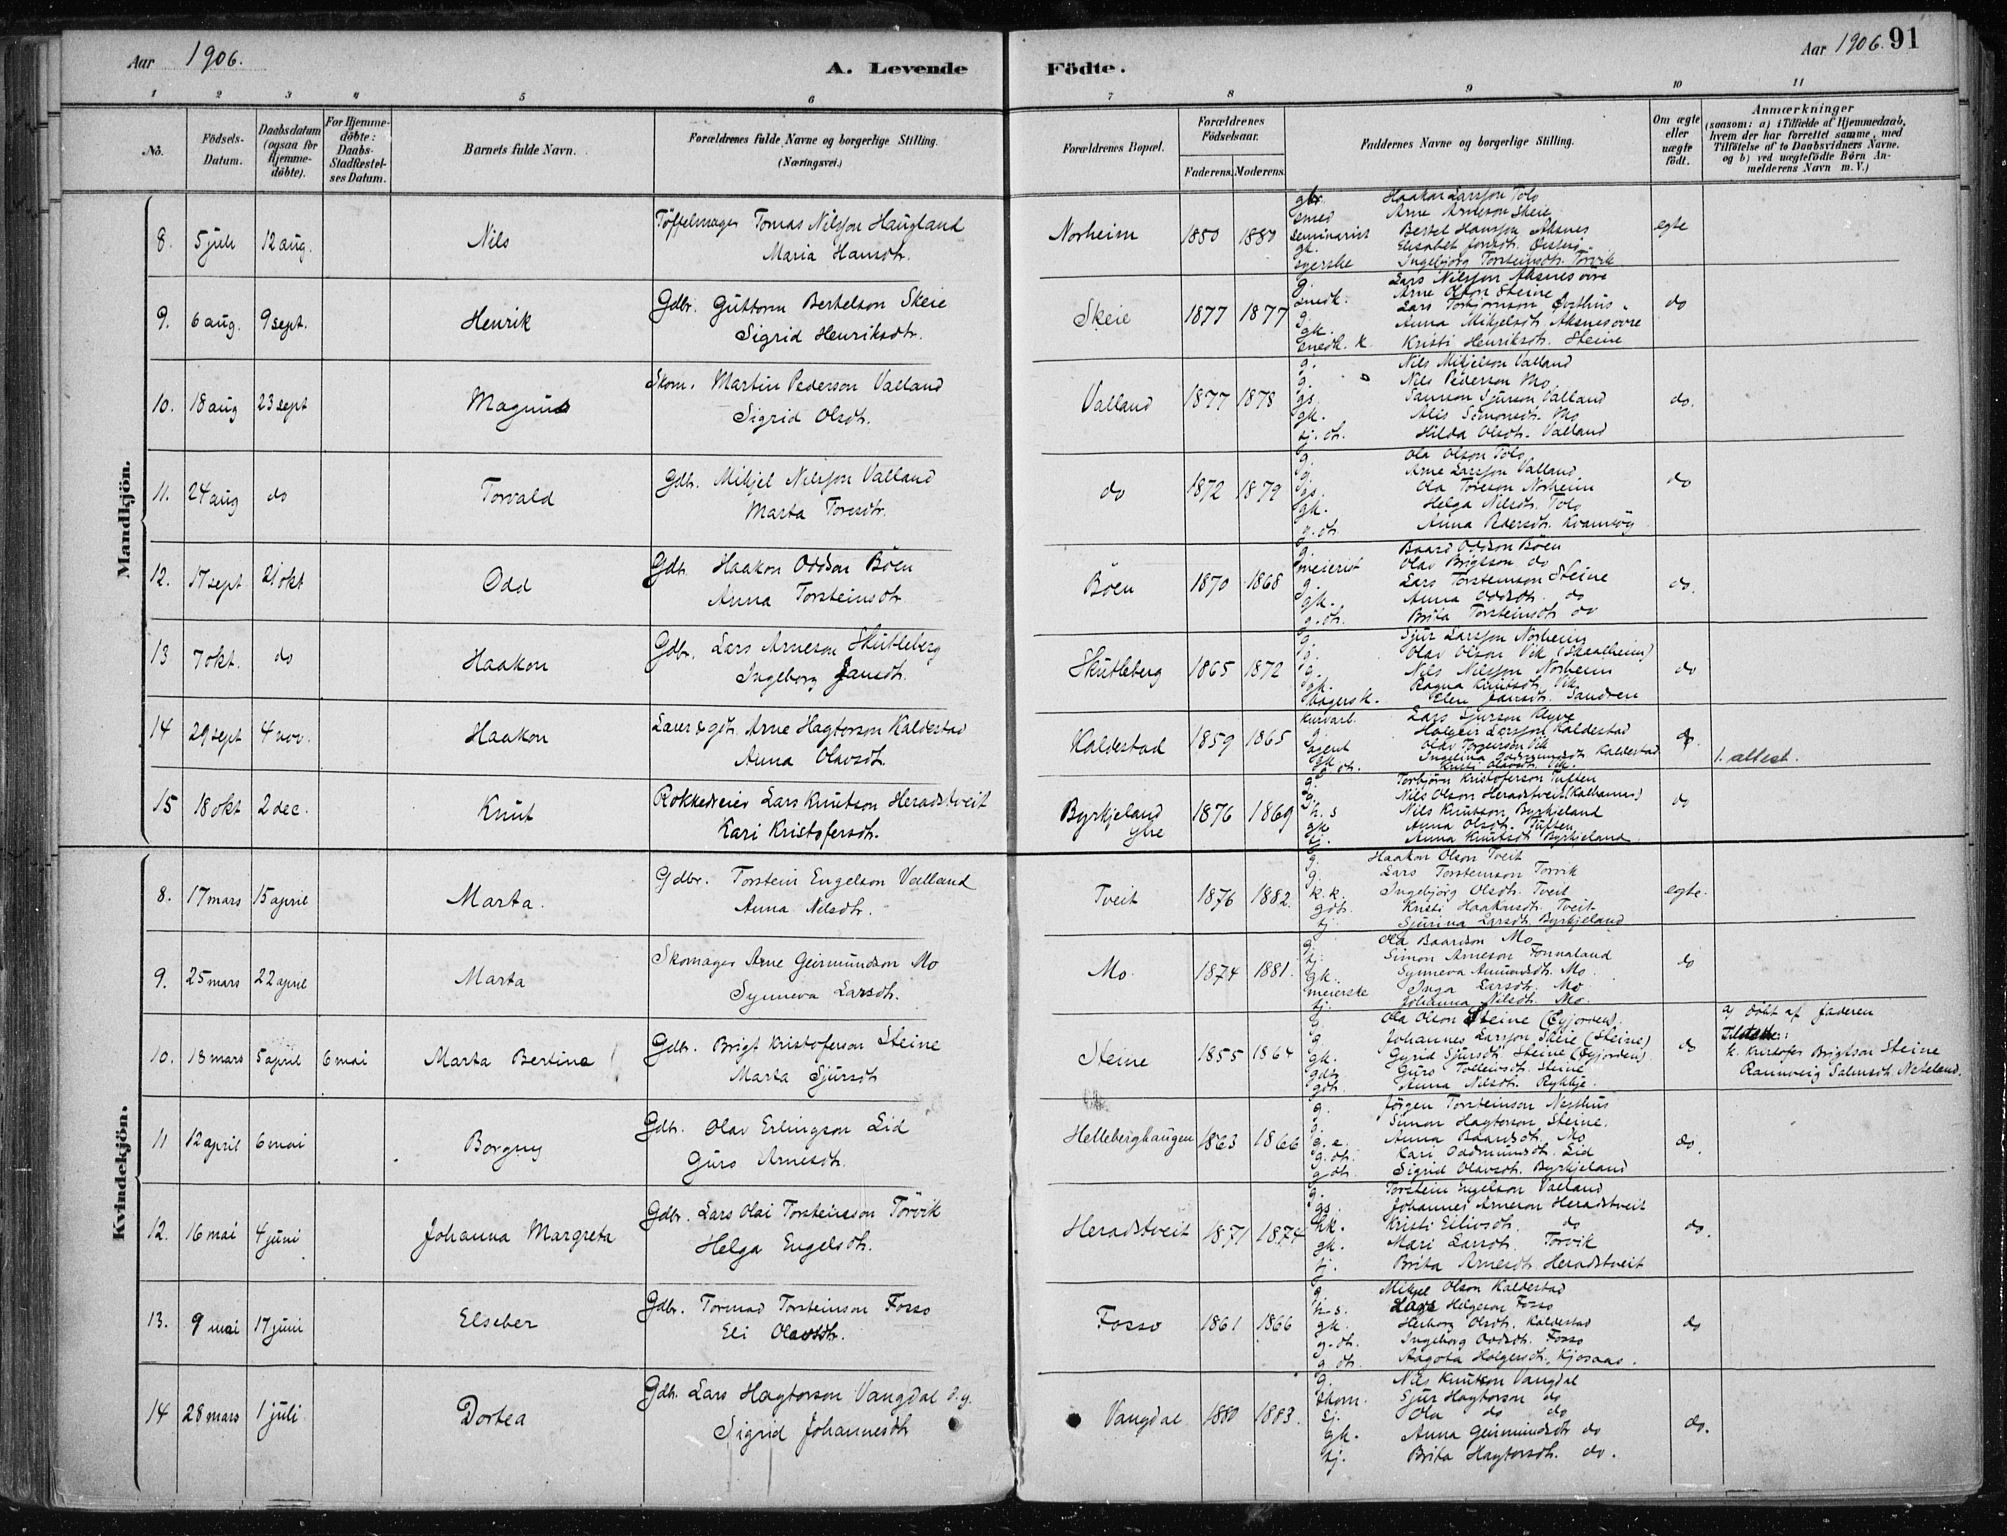 Aar 1906.
A. Levende Födte.
Aar 1906. 91
1 2 3 4 5 6 7 8 9 10 11
No.
Födsels-Datum.
Daabsdatum (ogsaa for Hjemme-döbte).
For Hjemme-döbte: Daabs-Stadfæstel-ses Datum.
Barnets fulde Navn.
Forældrenes fulde Navne og borgerlige Stilling. (Næringsvei.)
Forældrenes Bopæl.
Forældrenes Födselsaar.
Faderens. Moderens.
Faddernes Navne og borgerlige Stilling.
Om ægte eller uægte födt.
Anmærkninger
(saasom: a) i Tilfælde af Hjemmedaab, hvem der har forrettet samme, med Tilföielse af to Daabsvidners Navne. og b) ved uægtefödte Börn An-melderens Navn m. V.)
Mandkjön.
8. 5 juli 12 aug. Nils Töffelmager Tomas Nilsson Haugland
Maria Hansdtr. Norheim 1850 1880 egte
gbr. Haakon Larsson Tolo
smed Arne Arneson Skeie
seminarist Bertel Hansson Aksnes
gk. Elisabet Jonsdtr.
syerske Ingebjörg Torsteinsdtr. Torvik
9. 6 aug. 9 sept. Henrik Gdbr. Guttorm Bertelson Skeie
Sigrid Henriksdtr. Skeie 1877 1877 do
g. Lars Nilsson Aksnes övre
snedk. Arne Olson Steine
g. Lars Torbjörnson
gk. Anna Mikjelsdtr. Aksnes övre
snedk. k. Kristi Henriksdtr. Steine
10. 18 aug 23 sept Magnus Skom. Martin Pederson Valland
Sigrid Olsdtr. Valland 1877 1878 do.
g. Nils Mikjelson Valland
g. Nils Pederson Mo
gs. Samson Sjurson Valland
gk. Alis Simonsdtr. Mo
tj. dtr. Hilda Olsdtr. Valland
11. 24 aug do Torvald Gdbr. Mikjel Nilsson Valland
Marta Toresdtr. do 1872 1879 do
g. Ola Olson Tolo
g. Arne Larsson Valland
gs. Ola Toreson Norheim
gk. Helga Nilsdtr. Tolo
g. dtr. Anna Pedersdtr. Kvamsöy
12. 17 sept 21 okt Odd Gdbr. Haakon Oddson Böen
Anna Torsteinsdtr. Böen 1870 1868 do.
g. Baard Oddson Böen
meierist Olav Brigtson do
g. Lars Torsteinson Steine
gk. Anna Oddsdtr. do
g. dtr. Brita Torsteinsdtr. do
13 7 okt. do Haakon Gdbr. Lars Arneson Skutleberg
Ingeborg Jansdtr. Skutleberg 1865 1872 do
g. Sjur Larsson Norheim
g. Olav Olson Vik (Skaalheim)
g. Nils Nilsson Norheim
gk. Ragna Knutsdtr. Vik
bagersk. Elen Jansdtr. Sandven
14 29 sept 4 nov. Haakon Lærer & gdr. Arne Hagtorson Kaldestad
Anna Olavsdtr. Kaldestad 1859 1865 do. 1. attest.
Kurvarb. Lars Sjurson Kleyve
g. Holgeir Larsson Kaldestad
agent Olav Torgeirson Vik
gk. Ingelina Oddmundsdtr. Kaldestad
g. dtr. Kristi Olavsdtr. Vik.
15 18 okt 2 dec. Knut Rokkedreier Lars Knutson Heradstveit
Kari Kristofersdtr. Byrkjeland ytre 1876 1869 do
g. Torbjörn Kristoferson Tuften
g. Nils Olson Heradstveit (Kalhamar)
h. s Nils Knutson Byrkjeland
gk Anna Olsdtr. Tuften
tj. Anna Knutsdtr. Byrkjeland.
Kvindekjön.
8. 17 mars 15 april Marta. Gdbr. Torstein Engelson Valland
Anna Nilsdtr. Tveit 1876 1882. egte.
g. Haakon Olson Tveit
g. Lars Torsteinson Torvik
k. k. Ingebjörg Olsdtr. Tveit
gdtr. Kristi Haakonsdtr. Tveit
tj. Sjurina Larsdtr. Byrkjeland
9. 25 mars 22 april Marta Skomager Arne Geirmundson Mo
Synneva Larsdtr. Mo 1874 1881. do
g. Ola Baardson Mo
tj. Simon Arneson Fonnaland
gk. Synneva Amundsdtr. Mo
meierske Inga Larsdtr. Mo
tj. Johanna Nilsdtr. Mo.
10. 13 mars 5 april 6 mai Marta Bertine Gdbr. Brigt Kristoferson Steine
Marta Sjursdtr Steine 1855 1864 do
g. Ola Olson Steine (Eyjorden).
g. Johannes Larsson Skeie (Steine)
gk. Gyrid Sjursdtr. Steine (Eyjorden)
gdtr. Guro Tolleivsdtr. Steine
gdtr. Anna Nilsdtr. Rykkje.
a) Döbt af faderen
Tilstede:
k. Kristofer Brigtson Steine
Rannveig Salmsdtr. Neteland.
11 12 april 6 mai Borgny Gdbr. Olav Erlingson Lid
Guro Arnesdtr. Helleberghaugen 1863 1866 do.
g. Jörgen Torsteinson Nesthus
g. Simon Hagtorson Steine.
g. e. Anna Baardsdtr. Mo
g. dtr. Kari Oddmundsdtr. Lid
gdtr. Sigrid Olavsdtr. Byrkjeland
12. 16 mai 4 juni Johanna Margreta Gdbr. Lars Olai Torsteinsson Törvik
Helga Engelsdtr. Heradstveit 1871 1874 do.
g. Torstein Engelson Valland
gs. Johannes Arneson Heradstveit
hk. Kristi Eilivsdtr. do
gk. Mari Larsdtr. Torvik
tj. Brita Arnesdtr. Heradstveit
13. 9 mai 17 juni Elseber Gdbr. Tormod Torsteinson Fosso
Eli Olavsdtr. Fosso 1861 1866 do
g. Mikjel Olson Kaldestad
h. s. Lars Helgeson Fosso
gk. Herborg Olsdtr. Kaldestad
g. dtr. Ingeborg Oddsdtr. Fosso
g dtr. Aagota Holgersdtr. Kjosaas.
14 28 mars 1 juli Dortea Gdbr. Lars Hagtorson Vangdal d. y.
Sigrid Johannesdtr Vangdal 1880 1883. do.
g. Nils Knutson Vangdal
skom. Sjur Hagtorson do
tj. Ola do do
gk. Anna Geirmundsdtr do
tj. Brita Hagtorsdtr. do.